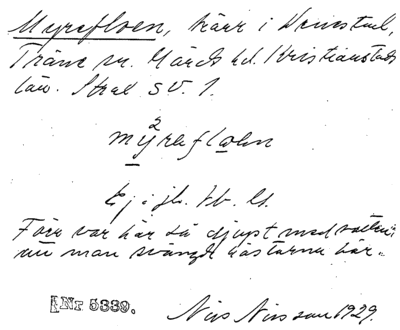 Myrafloen, kärr i Denestad,
Träne sn. Gärds hd. Kristianstads
län. Strax SV. 1.
mÿ²raflọan
Ej i jb. Wb. G.
Förr var här så djupt med vatten,
nu man svänger hästarna här.
Nr 5339.
Nils Nilsson 1929.